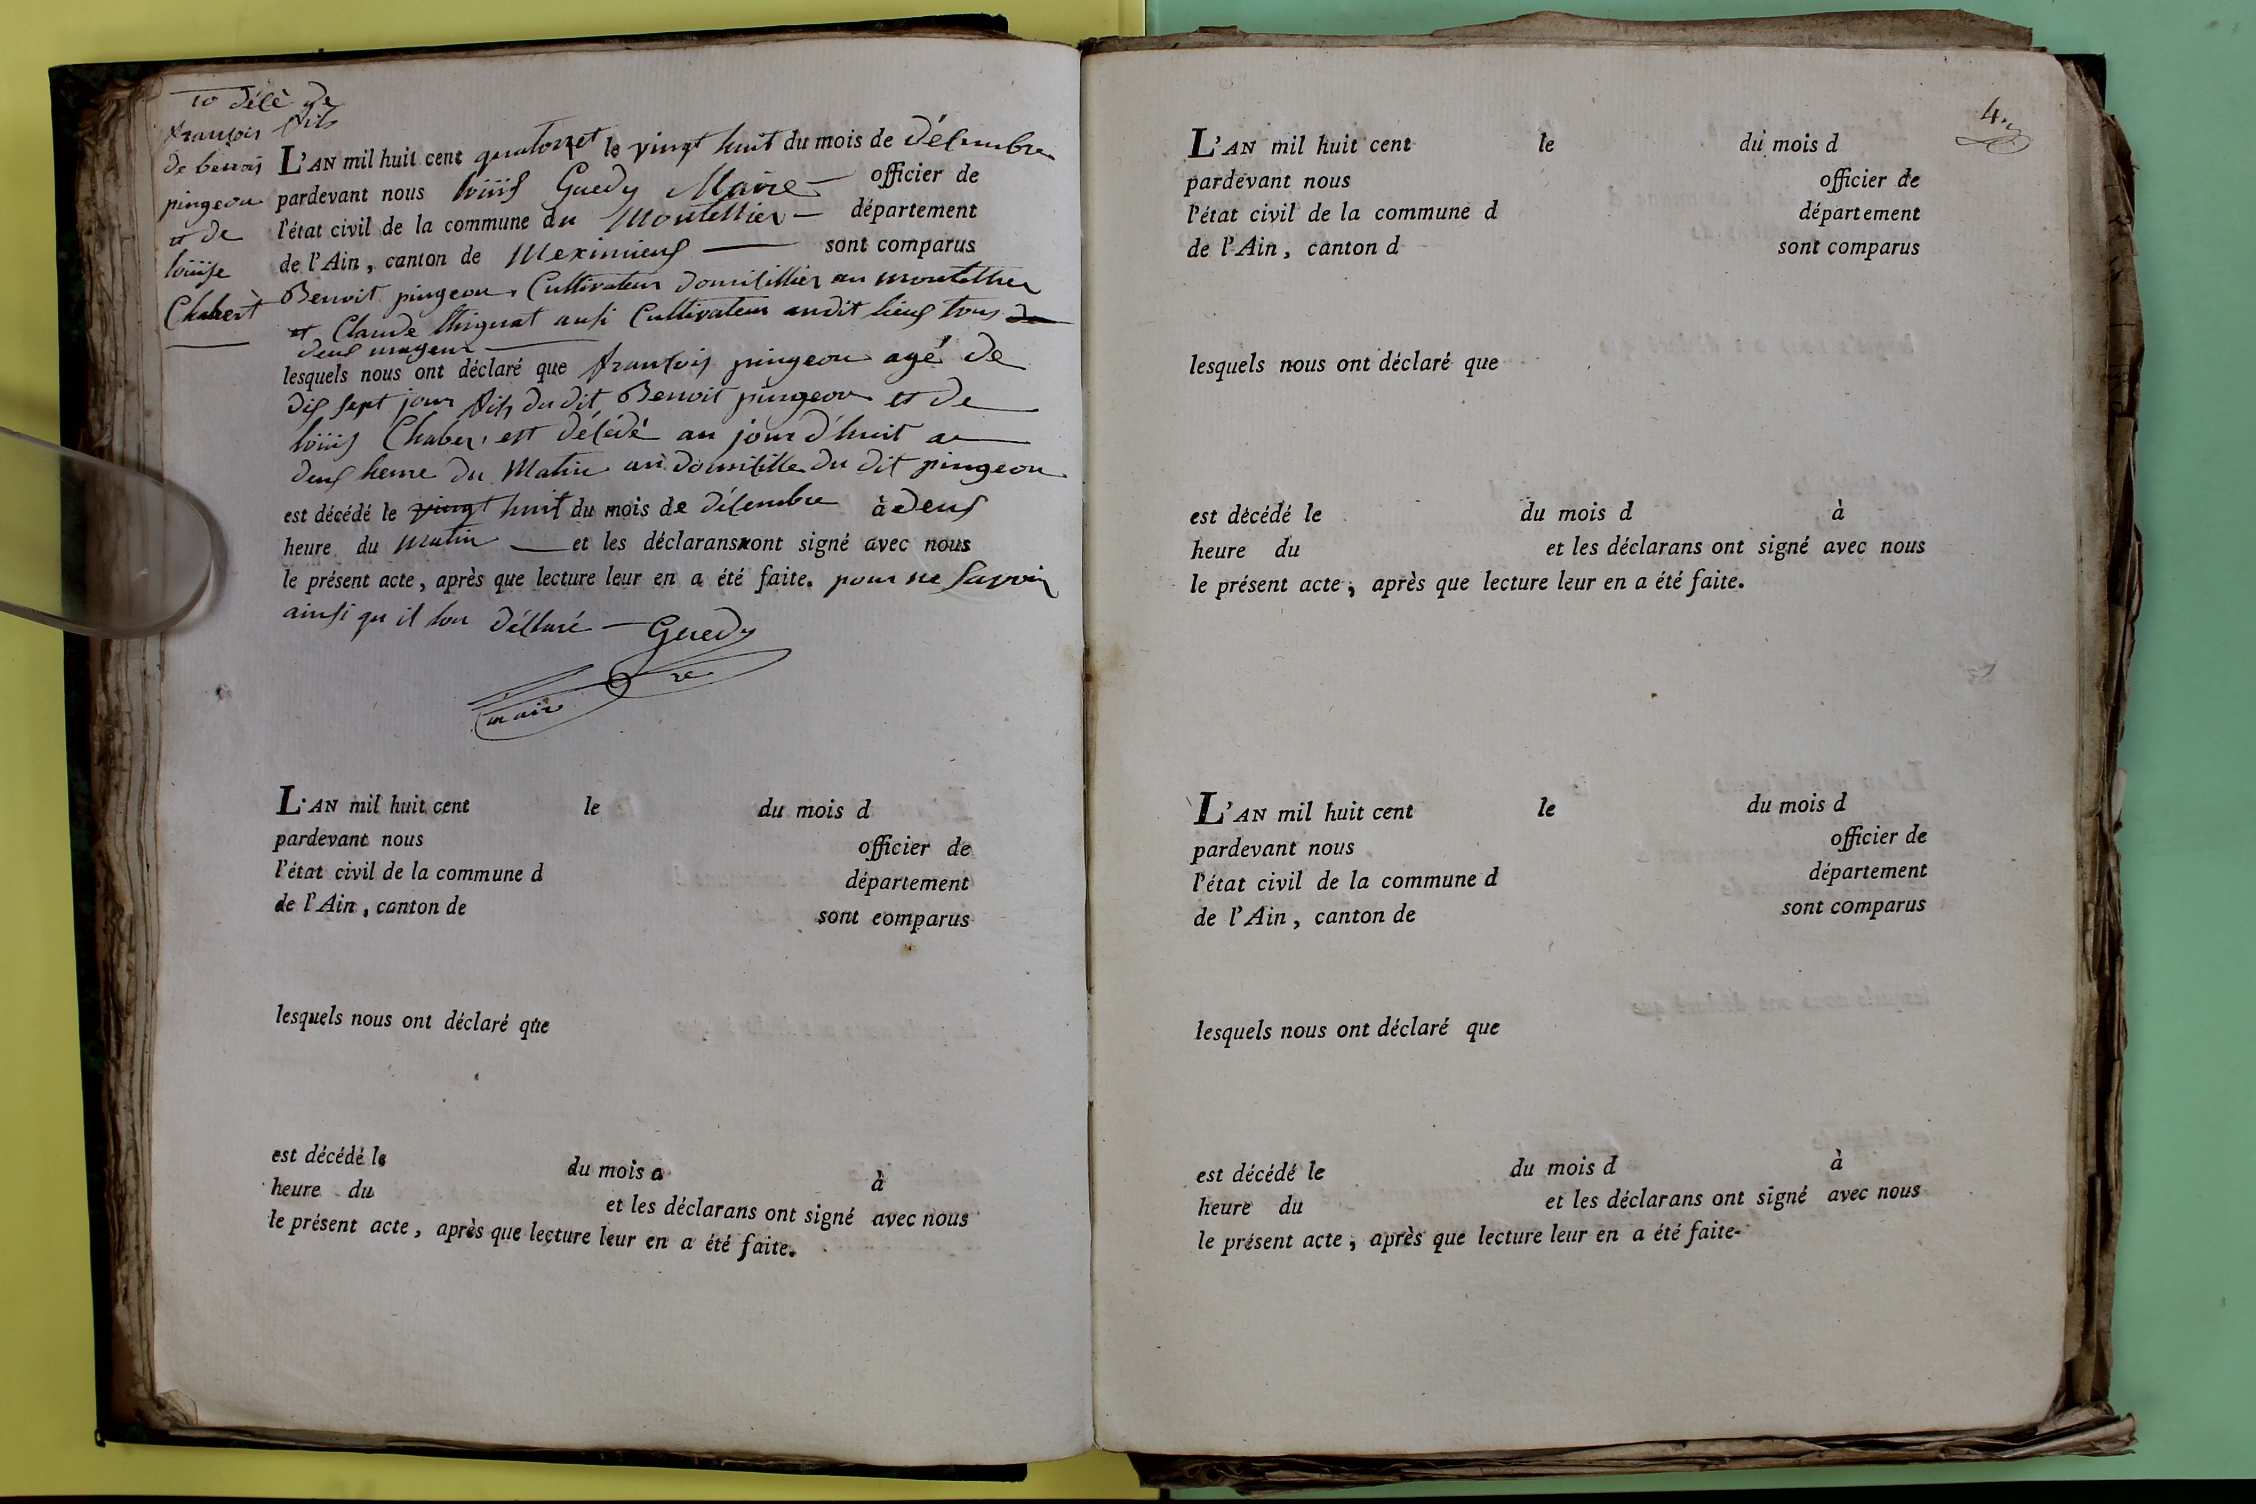 10 décè de
françois fils
de benoi
pingeon
et de
loüise
Chabert
L'AN mil huit cent quatorzet le vingt huit du mois de décembre
pardevant nous loüis Guedy Maire officier de
l'état civil de la commune du Montellier département
de l'Ain, canton de Meximieus sont comparus
Benoit pingeon Cultivateur domicillier au montellier
et Claude thignat ausi Cultivateur audit lieus tous de
deus mageur
lesquels nous ont déclaré que françois pingeon agé de
dis sept jour fils du dit Benoit pingeon et de
loüis Chaber est décédé au jour d'huit a
deus heure du Matin au domicille du dit pingeon
est décédé le vingt huit du mois de décembre à deus
heure du matin et les déclarans ont signé avec nous
le présent acte, après que lecture leur en a été faite. pour ne savoir
ainsi qu il lon déclaré Guedy
maire
L'AN mil huit cent le du mois d
pardevant nous officier de
l'état civil de la commune d département
de l'Ain, canton de sont comparus
lesquels nous ont déclaré que
est décédé le du mois d à
heure du et les déclarans ont signé avec nous
le présent acte, après que lecture leur en a été faite.
4.
L'AN mil huit cent le du mois d
pardevant nous officier de
l'état civil de la commune d département
de l'Ain, canton d sont comparus
lesquels nous ont déclaré que
est décédé le du mois d à
heure du et les déclarans ont signé avec nous
le présent acte, après que lecture leur en a été faite.
L'AN mil huit cent le du mois d
pardevant nous officier de
l'état civil de la commune d département
de l'Ain, canton de sont comparus
lesquels nous ont déclaré que
est décédé le du mois d à
heure du et les déclarans ont signé avec nous
le présent acte, après que lecture leur en a été faite.